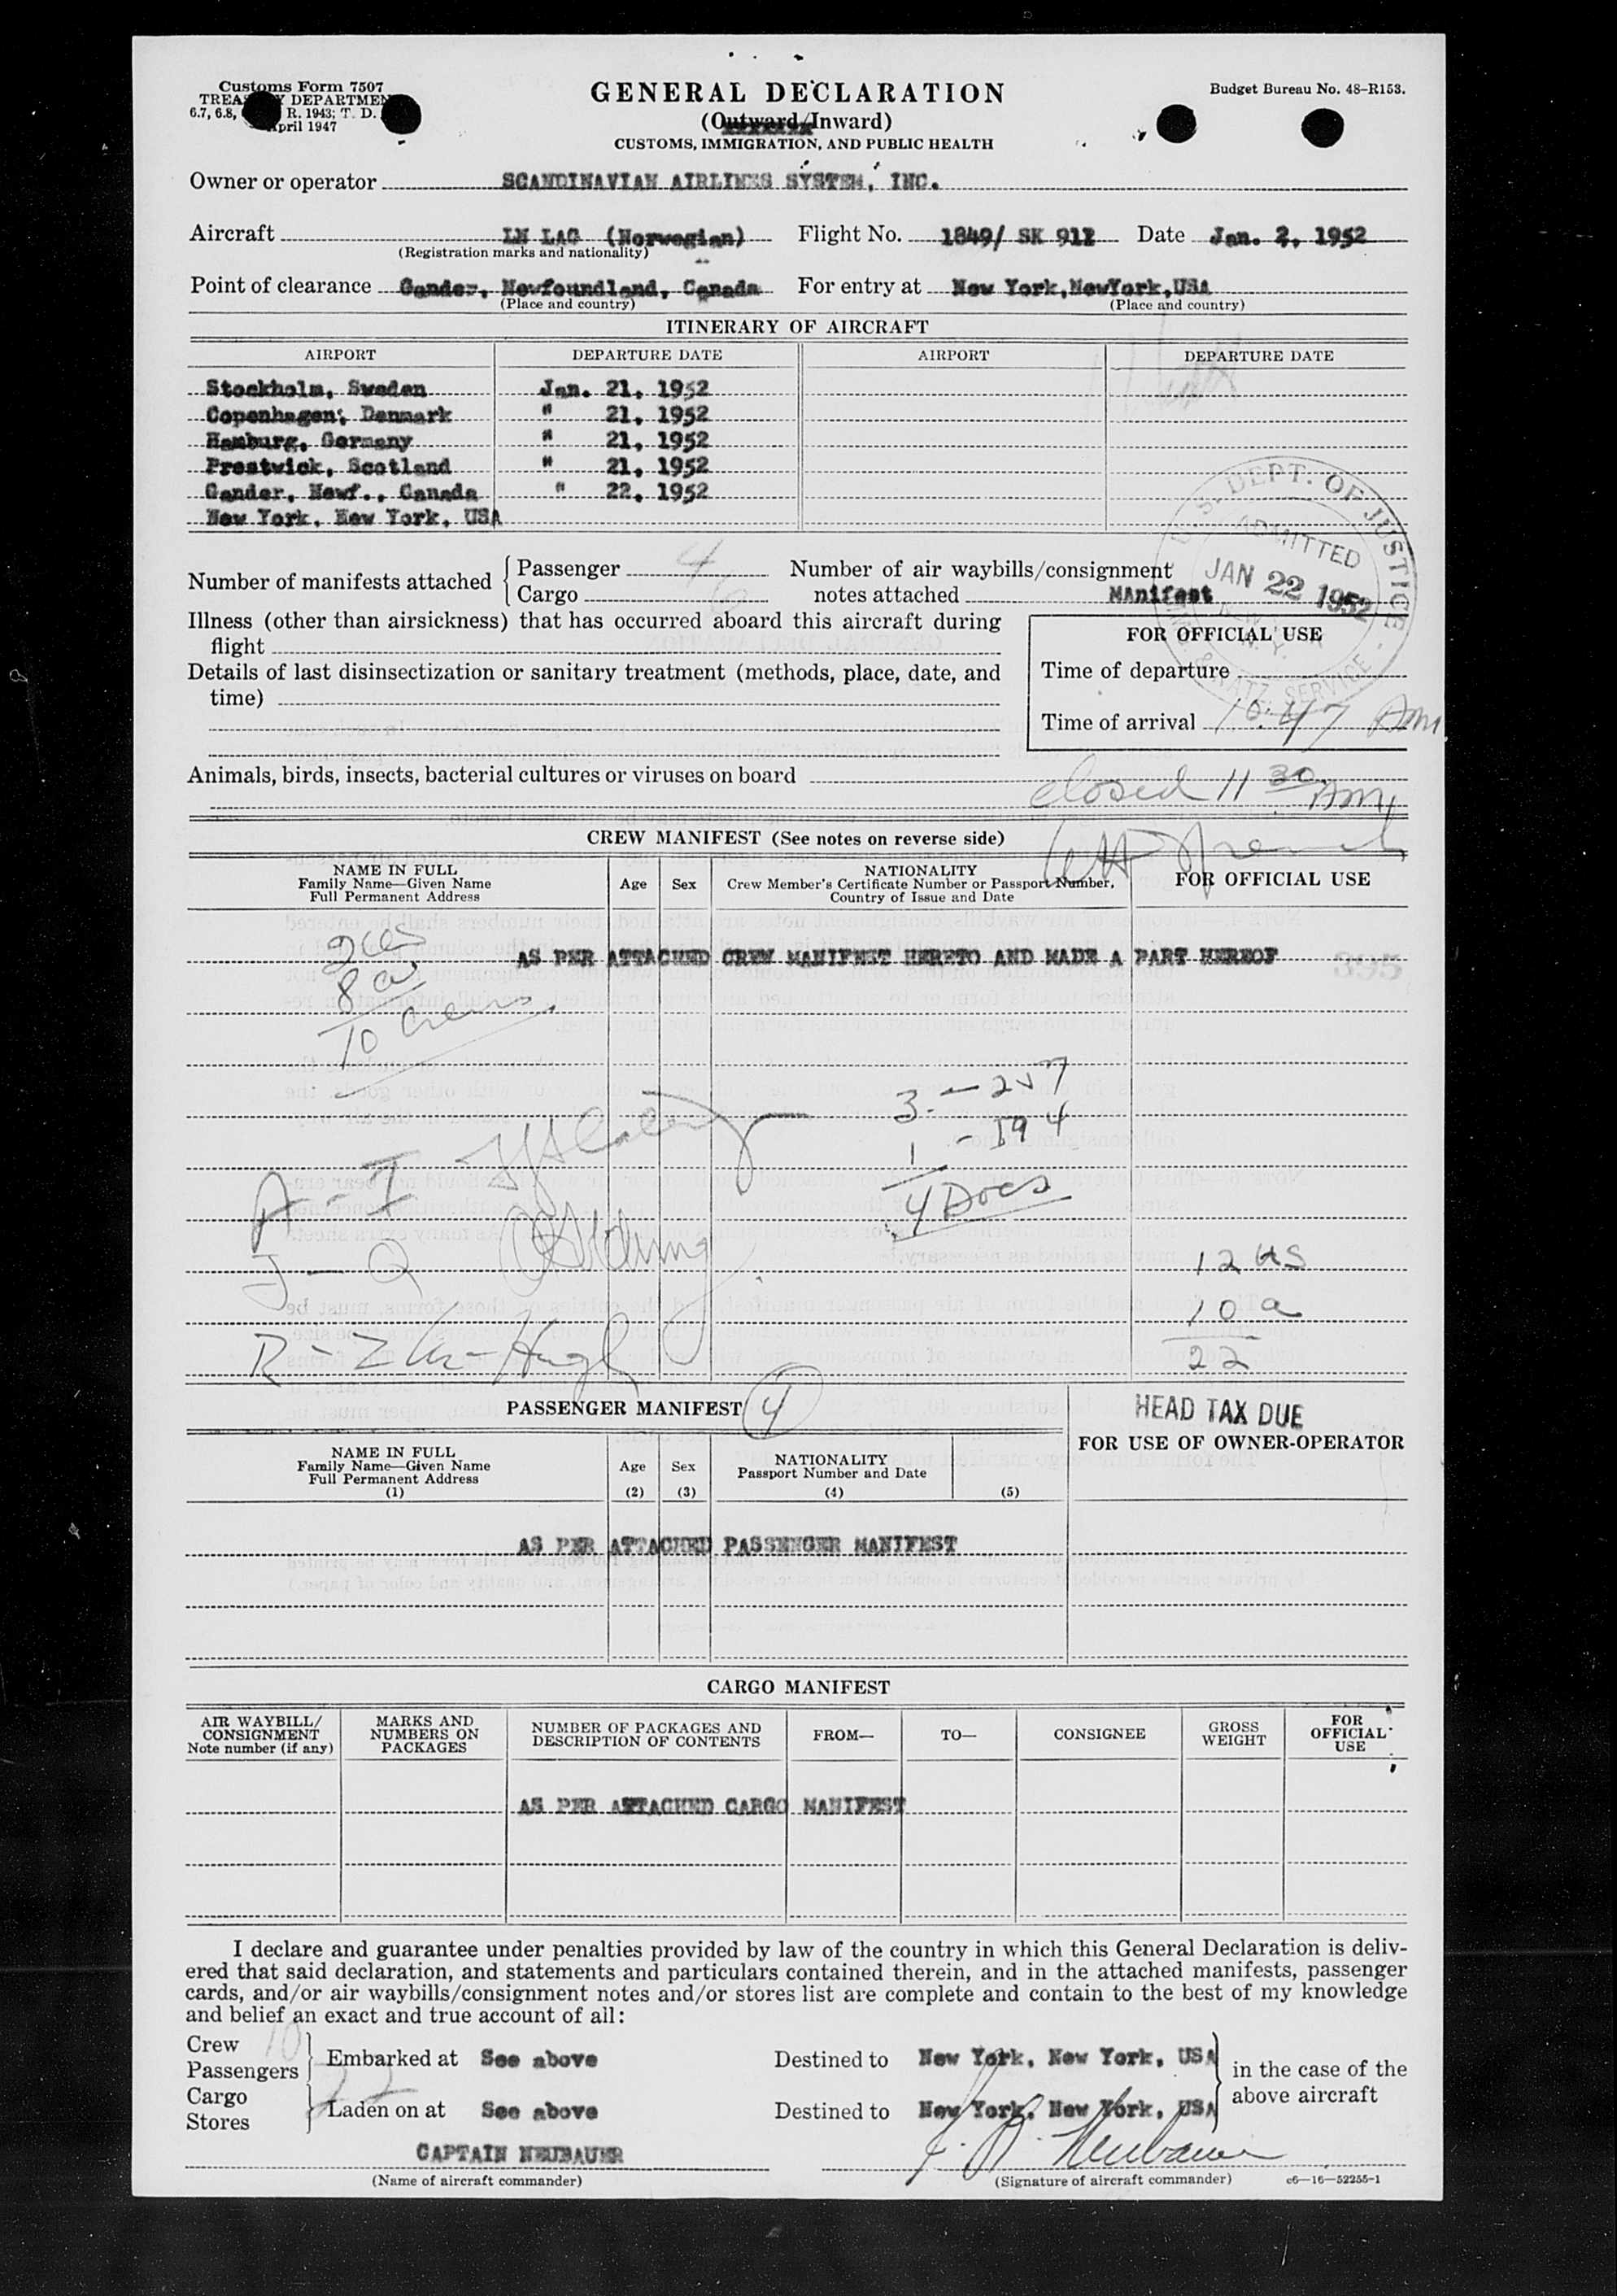 Customs Form 7507
TREA Y DEPARTMEN
6.7, 6.8, R. 1943; T. D.
pril 1947
GENERAL DECLARATION
(Outward/Inward)
CUSTOMS, IMMIGRATION, AND PUBLIC HEALTH
Budget Bureau No. 48–R153.
Owner or operator SCANDINAVIAN AIRLINES SYSTEM, INC.
Aircraft LN LAG (Norwegian) Flight No. 1849/ SK 912 Date Jan. 2, 1952
(Registration marks and nationality)
Point of clearance Gander, Newfoundland, Canada For entry at New York,NewYork,USA
(Place and country) (Place and country)
ITINERARY OF AIRCRAFT
AIRPORT DEPARTURE DATE AIRPORT DEPARTURE DATE
Stockholm, Sweden Jan. 21, 1952
Copenhagen, Denmark " 21, 1952
Hamburg, Germany " 21, 1952
Prestwick, Scotland " 21, 1952
Gander, Newf., Canada " 22, 1952
New York, New York, USA
U.S. DEPT. OF JUSTICE
ADMITTED
JAN 22 1952
NEW
N. Y.
SERVICE
Number of manifests attached { Passenger 4 Number of air waybills/consignment
Cargo notes attached MAnifest
Illness (other than airsickness) that has occurred aboard this aircraft during
flight
Details of last disinsectization or sanitary treatment (methods, place, date, and
time)
FOR OFFICIAL USE
Time of departure
Time of arrival 10:47 Am
Animals, birds, insects, bacterial cultures or viruses on board
closed 11 30 Am
CREW MANIFEST (See notes on reverse side)
NAME IN FULL
Family Name—Given Name
Full Permanent Address
Age Sex
NATIONALITY
Crew Member's Certificate Number or Passport Number,
Country of Issue and Date
FOR OFFICIAL USE
AS PER ATTACHED CREW MANIFEST HERETO AND MADE A PART HEREOF
8 a
10 Crews
3 - 257
1 - I94
4 Docs
A - I
J - Q
R - Z
12 US
10 a
22
PASSENGER MANIFEST 4
HEAD TAX DUE
FOR USE OF OWNER-OPERATOR
NAME IN FULL
Family Name—Given Name
Full Permanent Address
(1)
Age
(2)
Sex
(3)
NATIONALITY
Passport Number and Date
(4) (5)
AS PER ATTACHED PASSENGER MANIFEST
CARGO MANIFEST
AIR WAYBILL/
CONSIGNMENT
Note number (if any)
MARKS AND
NUMBERS ON
PACKAGES
NUMBER OF PACKAGES AND
DESCRIPTION OF CONTENTS
FROM— TO— CONSIGNEE
GROSS
WEIGHT
FOR
OFFICIAL
USE
AS PER ATTACHED CARGO MANIFEST
I declare and guarantee under penalties provided by law of the country in which this General Declaration is deliv-
ered that said declaration, and statements and particulars contained therein, and in the attached manifests, passenger
cards, and/or air waybills/consignment notes and/or stores list are complete and contain to the best of my knowledge
and belief an exact and true account of all:
Crew 10
Passengers 22 Embarked at See above Destined to New York, New York, USA in the case of the
Cargo above aircraft
Stores Laden on at See above Destined to New York, New York, USA
CAPTAIN NEUBAUER J. R. Neubauer
(Name of aircraft commander) (Signature of aircraft commander) c6—16—52255-1